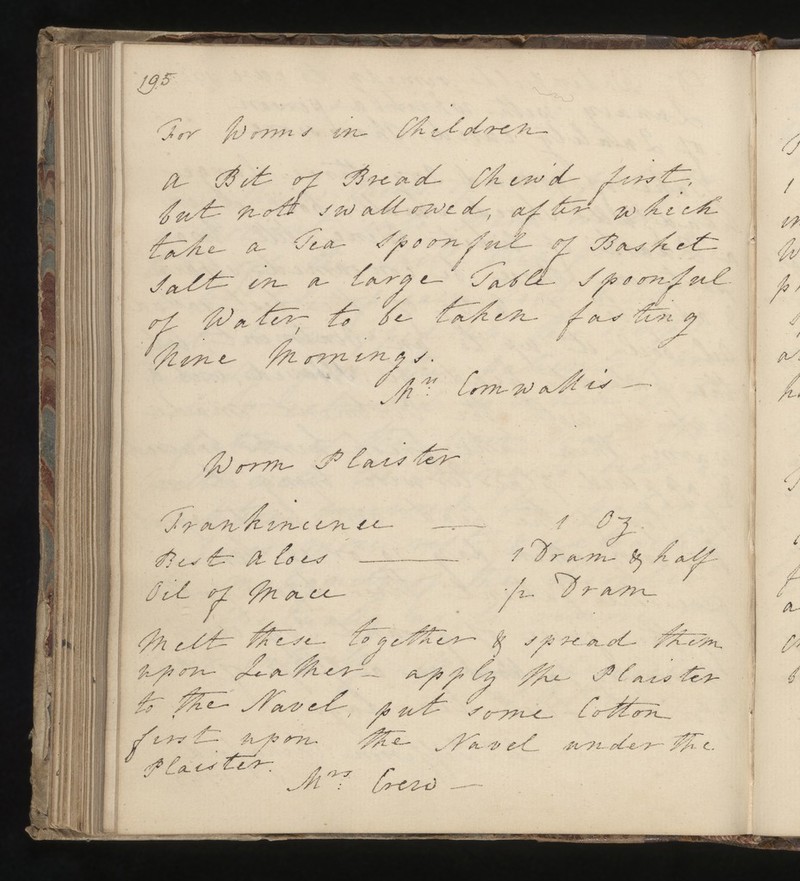 195
For Worms in Children
a Bit of Bread Chew'd first,
but nott swallowed, after which
take a Tea Spoonful of Basket
Salt in a large Table Spoonful
of Water, to be taken fasting
Nine Mornings.
Mrs: Cornwallis —
Worm Plaister
Frankincense — 1 Oz.
Best Aloes — 1 Dram & half
Oil of Mace 1/2 Dram
Melt these together & spread them
upon Leather - apply the Plaister
to the Navel, put some Cotton
first upon the Navel under the
Plaister.
Mrs: Crew —